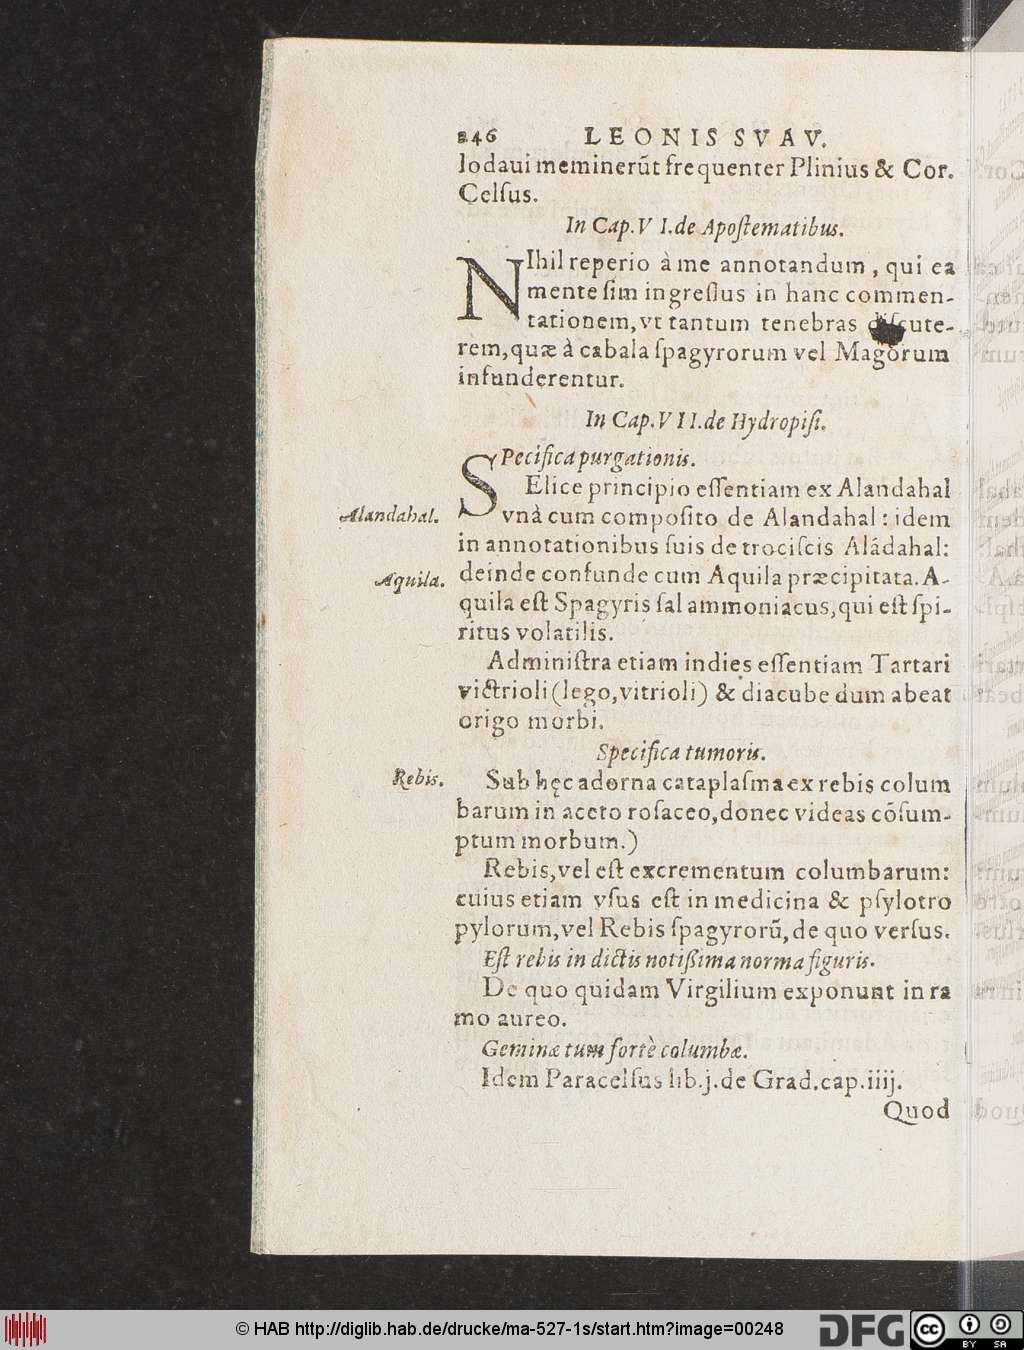 246 LEONIS SVAV.
lodaui meminerūt frequenter Plinius & Cor.
Celſus.
In Cap. V I. de Apoſtematibus.
NIhil reperio à me annotandum, qui ea
mente ſim ingreſſus in hanc commen-
tationem, vt tantum tenebras diſcute-
rem, quæ à cabala ſpagyrorum vel Magorum
infunderentur.
In Cap. V I I. de Hydropiſi.
SPecifica purgationis.
Elice principio eſſentiam ex Alandahal
Alandahal.
vnà cum compoſito de Alandahal: idem
in annotationibus ſuis de trociſcis Aládahal:
Aquila.
deinde confunde cum Aquila præcipitata. A-
quila eſt Spagyris ſal ammoniacus, qui eſt ſpi-
ritus volatilis.
Adminiſtra etiam indies eſſentiam Tartari
victrioli (lego, vitrioli) & diacube dum abeat
origo morbi.
Specifica tumoris.
Rebis.
Sub hęc adorna cataplaſma ex rebis colum
barum in aceto roſaceo, donec videas cõſum-
ptum morbum.)
Rebis, vel eſt excrementum columbarum:
cuius etiam vſus eſt in medicina & pſylotro
pylorum, vel Rebis ſpagyrorũ, de quo verſus.
Eſt rebis in dictis notiſſima norma figuris.
De quo quidam Virgilium exponunt in ra
mo aureo.
Geminæ tum fortè columbæ.
Idem Paracelſus lib. j. de Grad. cap. iiij.
Quod
© HAB http://diglib.hab.de/drucke/ma-527-1s/start.htm?image=00248
DFG
cc
BY SA